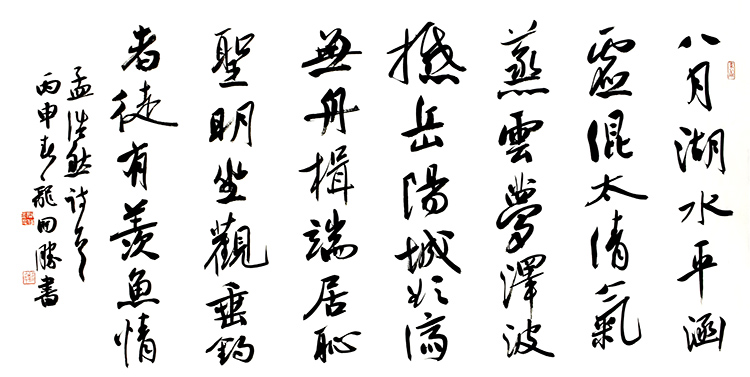 八月湖水平涵
虛混太清氣
蒸雲夢澤波
撼岳陽城欲濟
無舟楫端居恥
聖明坐觀垂釣
者徒有羨魚情
孟浩然詩
丙申春 勝書